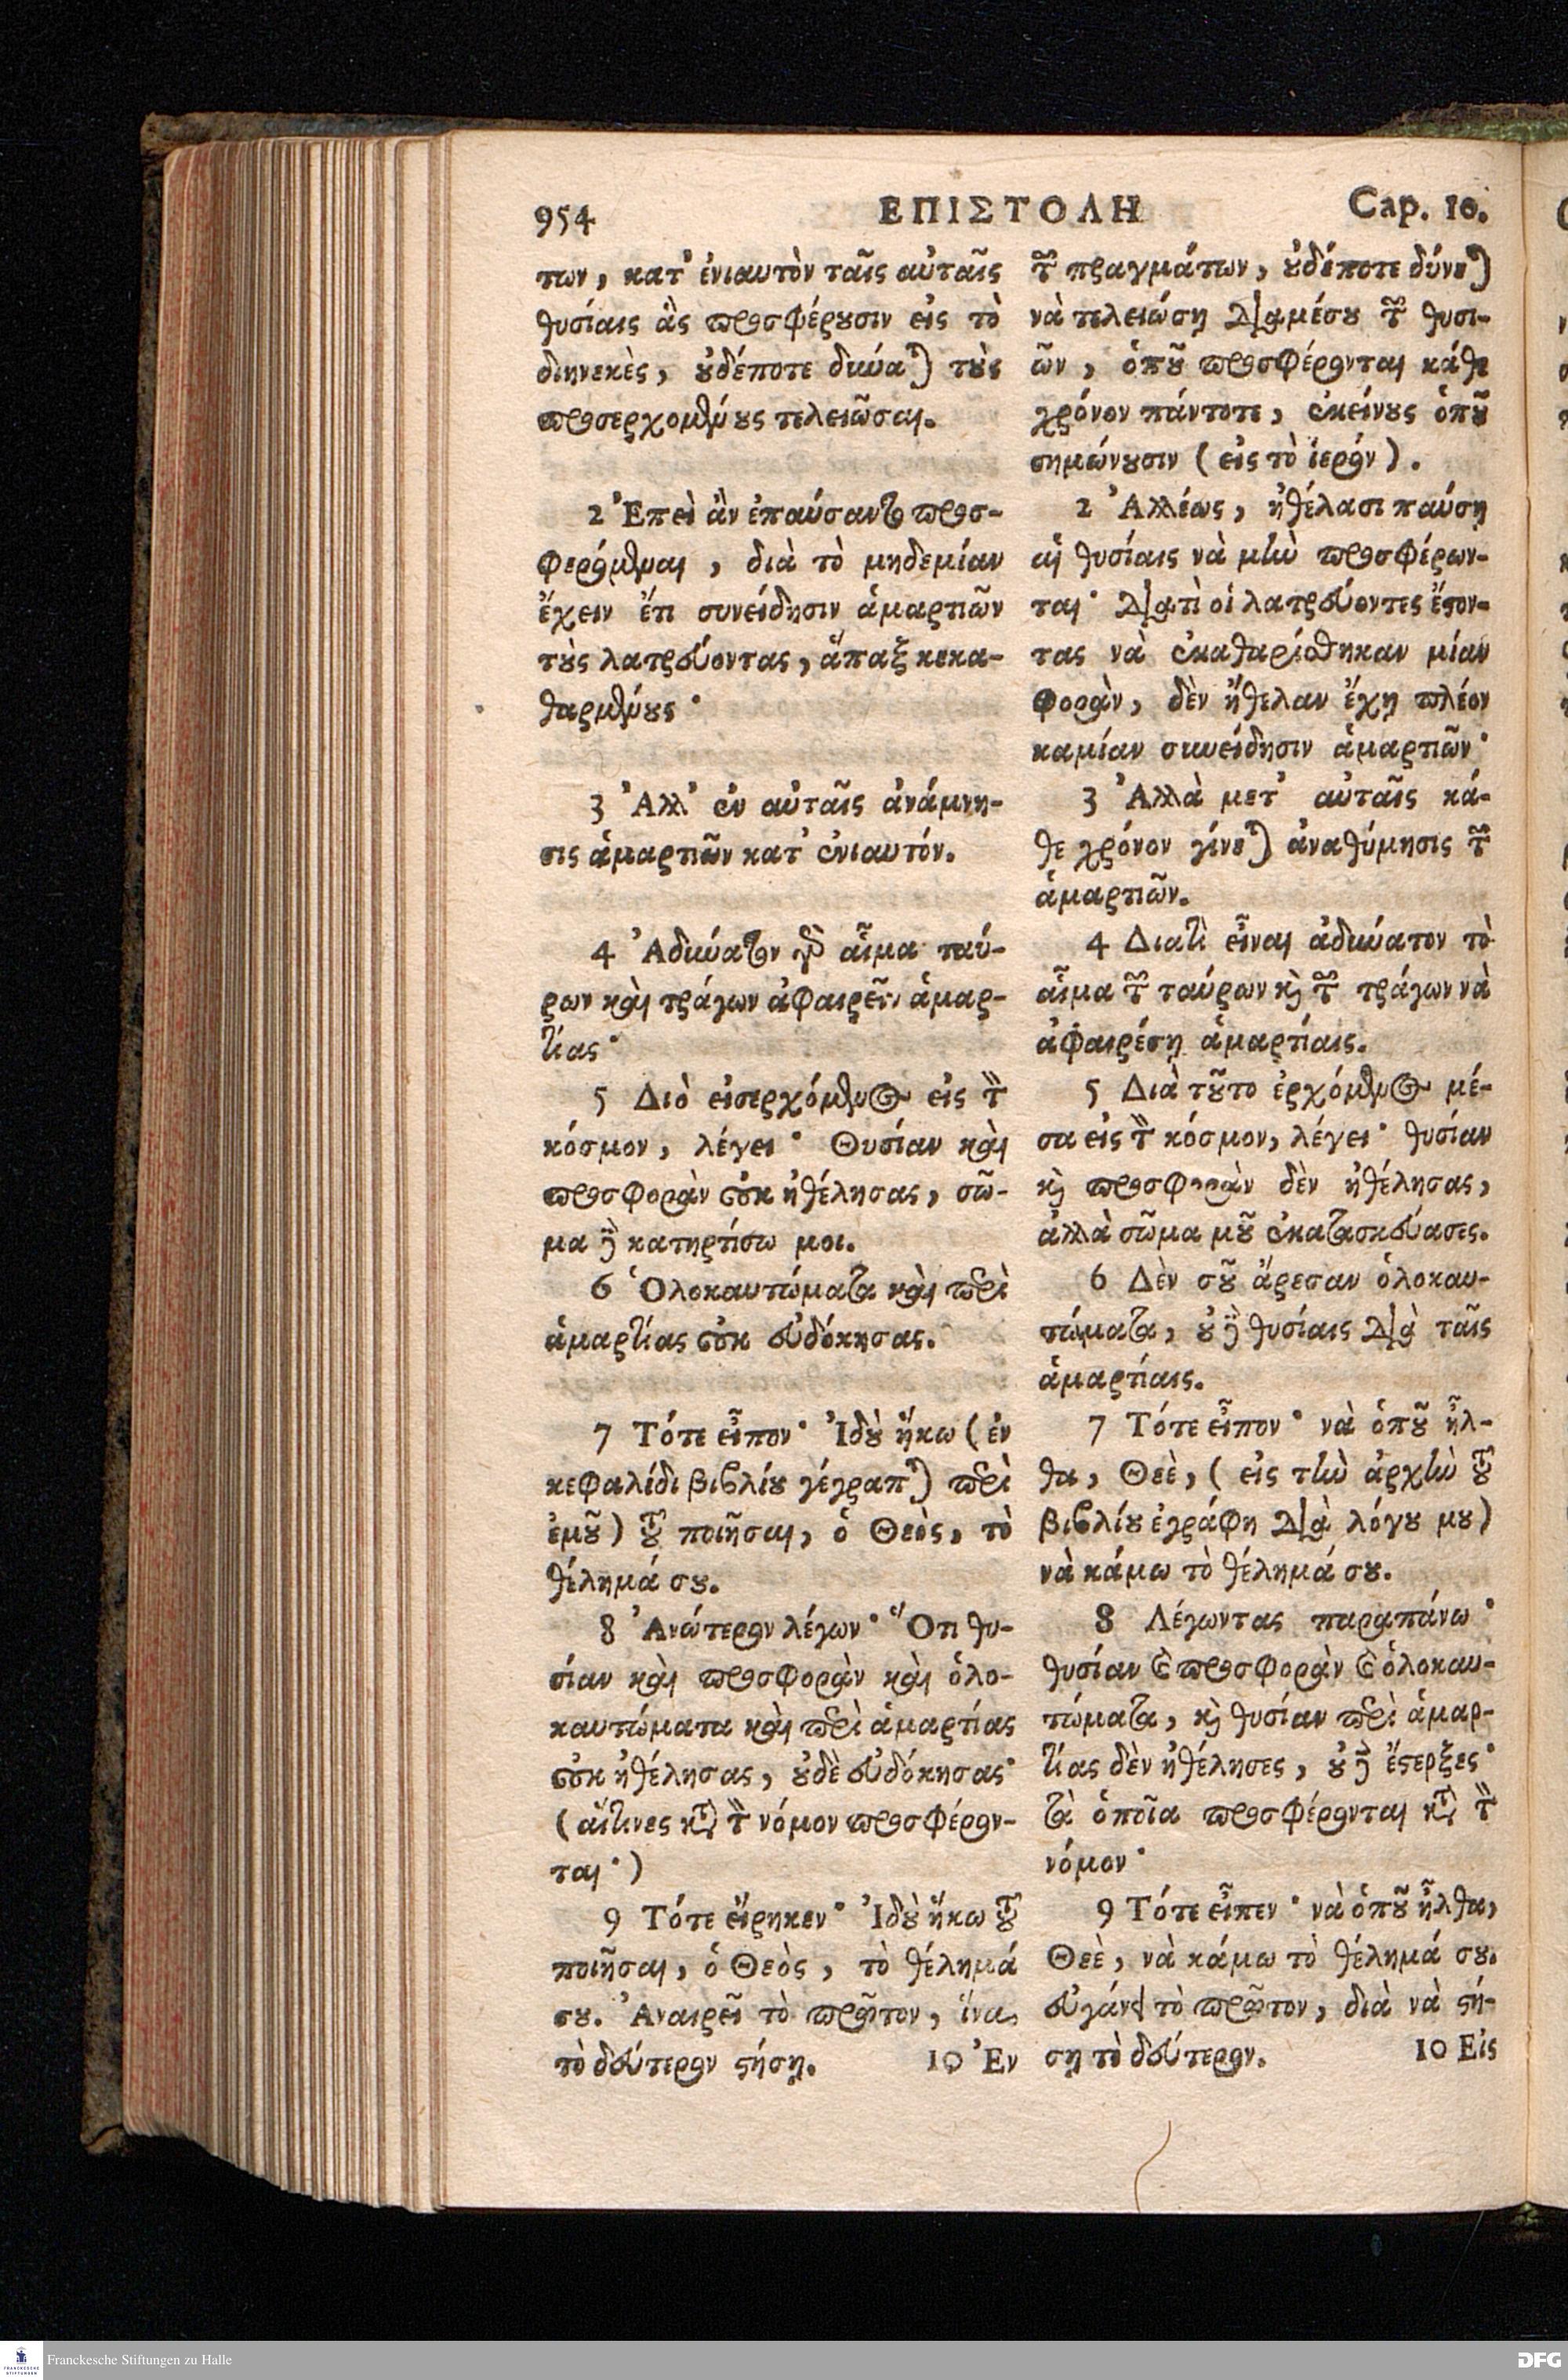 954 ΕΠΙΣΤΟΛΗ Cap. 10.
των, κατ' ἐνιαυτὸν ταῖς αὐταῖς
θυσίαις ἃς προσφέρουσιν εἰς τὸ
διηνεκὲς, οὐδέποτε δύναται τοὺς
προσερχομένους τελειῶσαι.
2 Ἐπεὶ ἂν ἐπαύσαντο προσ-
φερόμεναι, διὰ τὸ μηδεμίαν
ἔχειν ἔτι συνείδησιν ἁμαρτιῶν
τοὺς λατρεύοντας, ἅπαξ κεκα-
θαρμένους·
3 Ἀλλ' ἐν αὐταῖς ἀνάμνη-
σις ἁμαρτιῶν κατ' ἐνιαυτόν.
4 Ἀδύνατον γὰρ αἷμα ταύ-
ρων καὶ τράγων ἀφαιρεῖν ἁμαρ-
τίας·
5 Διὸ εἰσερχόμενος εἰς τὸν
κόσμον, λέγει· Θυσίαν καὶ
προσφορὰν οὐκ ἠθέλησας, σῶ-
μα δὲ κατηρτίσω μοι.
6 Ὁλοκαυτώματα καὶ περὶ
ἁμαρτίας οὐκ εὐδόκησας.
7 Τότε εἶπον· Ἰδοὺ ἥκω (ἐν
κεφαλίδι βιβλίου γέγραπται) περὶ
ἐμοῦ) τοῦ ποιῆσαι, ὁ Θεὸς, τὸ
θέλημά σου.
8 Ἀνώτερον λέγων· Ὅτι θυ-
σίαν καὶ προσφορὰν καὶ ὁλο-
καυτώματα καὶ περὶ ἁμαρτίας
οὐκ ἠθέλησας, οὐδὲ εὐδόκησας·
(αἵτινες κατὰ τὸν νόμον προσφέρον-
ται·)
9 Τότε εἴρηκεν· Ἰδοὺ ἥκω τοῦ
ποιῆσαι, ὁ Θεὸς, τὸ θέλημά
σου. Ἀναιρεῖ τὸ πρῶτον, ἵνα
τὸ δεύτερον στήσῃ. 10 Ἐν
τῶν πραγμάτων, οὐδέποτε δύνεται
νὰ τελειώσῃ διαμέσου τῶν θυσι-
ῶν, ὁποῦ προσφέρονται κάθε
χρόνον πάντοτε, ἐκείνους ὁποῦ
σημώνουσιν (εἰς τὸ ἱερόν).
2 Ἀλλέως, ἠθέλασι παύσῃ
αἱ θυσίαις νὰ μὴν προσφέρων-
ται· διατὶ οἱ λατρεύοντες ἔστον-
τας νὰ ἐκαθαρίσθηκαν μίαν
φορὰν, δὲν ἤθελαν ἔχῃ πλέον
καμίαν συνείδησιν ἁμαρτιῶν·
3 Ἀλλὰ μετ' αὐταῖς κά-
θε χρόνον γίνεται ἀναθύμησις τῶν
ἁμαρτιῶν.
4 Διατὶ εἶναι ἀδύνατον τὸ
αἷμα τῶν ταύρων καὶ τῶν τράγων νὰ
ἀφαιρέσῃ ἁμαρτίαις.
5 Διὰ τοῦτο ἐρχόμενος μέ-
σα εἰς τὸν κόσμον, λέγει· θυσίαν
καὶ προσφορὰν δὲν ἠθέλησας,
ἀλλὰ σῶμα μοῦ ἐκατασκεύασες.
6 Δὲν σοῦ ἄρεσαν ὁλοκαυ-
τώματα, οὐδὲ θυσίαις διὰ ταῖς
ἁμαρτίαις.
7 Τότε εἶπον· νὰ ὁποῦ ἦλ-
θα, Θεὲ, (εἰς τὴν ἀρχὴν τοῦ
βιβλίου ἐγράφη διὰ λόγου μου)
νὰ κάμω τὸ θέλημά σου.
8 Λέγωντας παραπάνω·
θυσίαν καὶ προσφορὰν καὶ ὁλοκαυ-
τώματα, καὶ θυσίαν περὶ ἁμαρ-
τίας δὲν ἠθέλησες, οὐδὲ ἔστερξες·
τὰ ὁποῖα προσφέρονται κατὰ τὸν
νόμον·
9 Τότε εἶπεν· νὰ ὁποῦ ἦλθα,
Θεὲ, νὰ κάμω τὸ θέλημά σου.
εὐγάνει τὸ πρῶτον, διὰ νὰ στή-
σῃ τὸ δεύτερον. 10 Εἰς
FRANCKESCHE STIFTUNGEN
Franckesche Stiftungen zu Halle
DFG